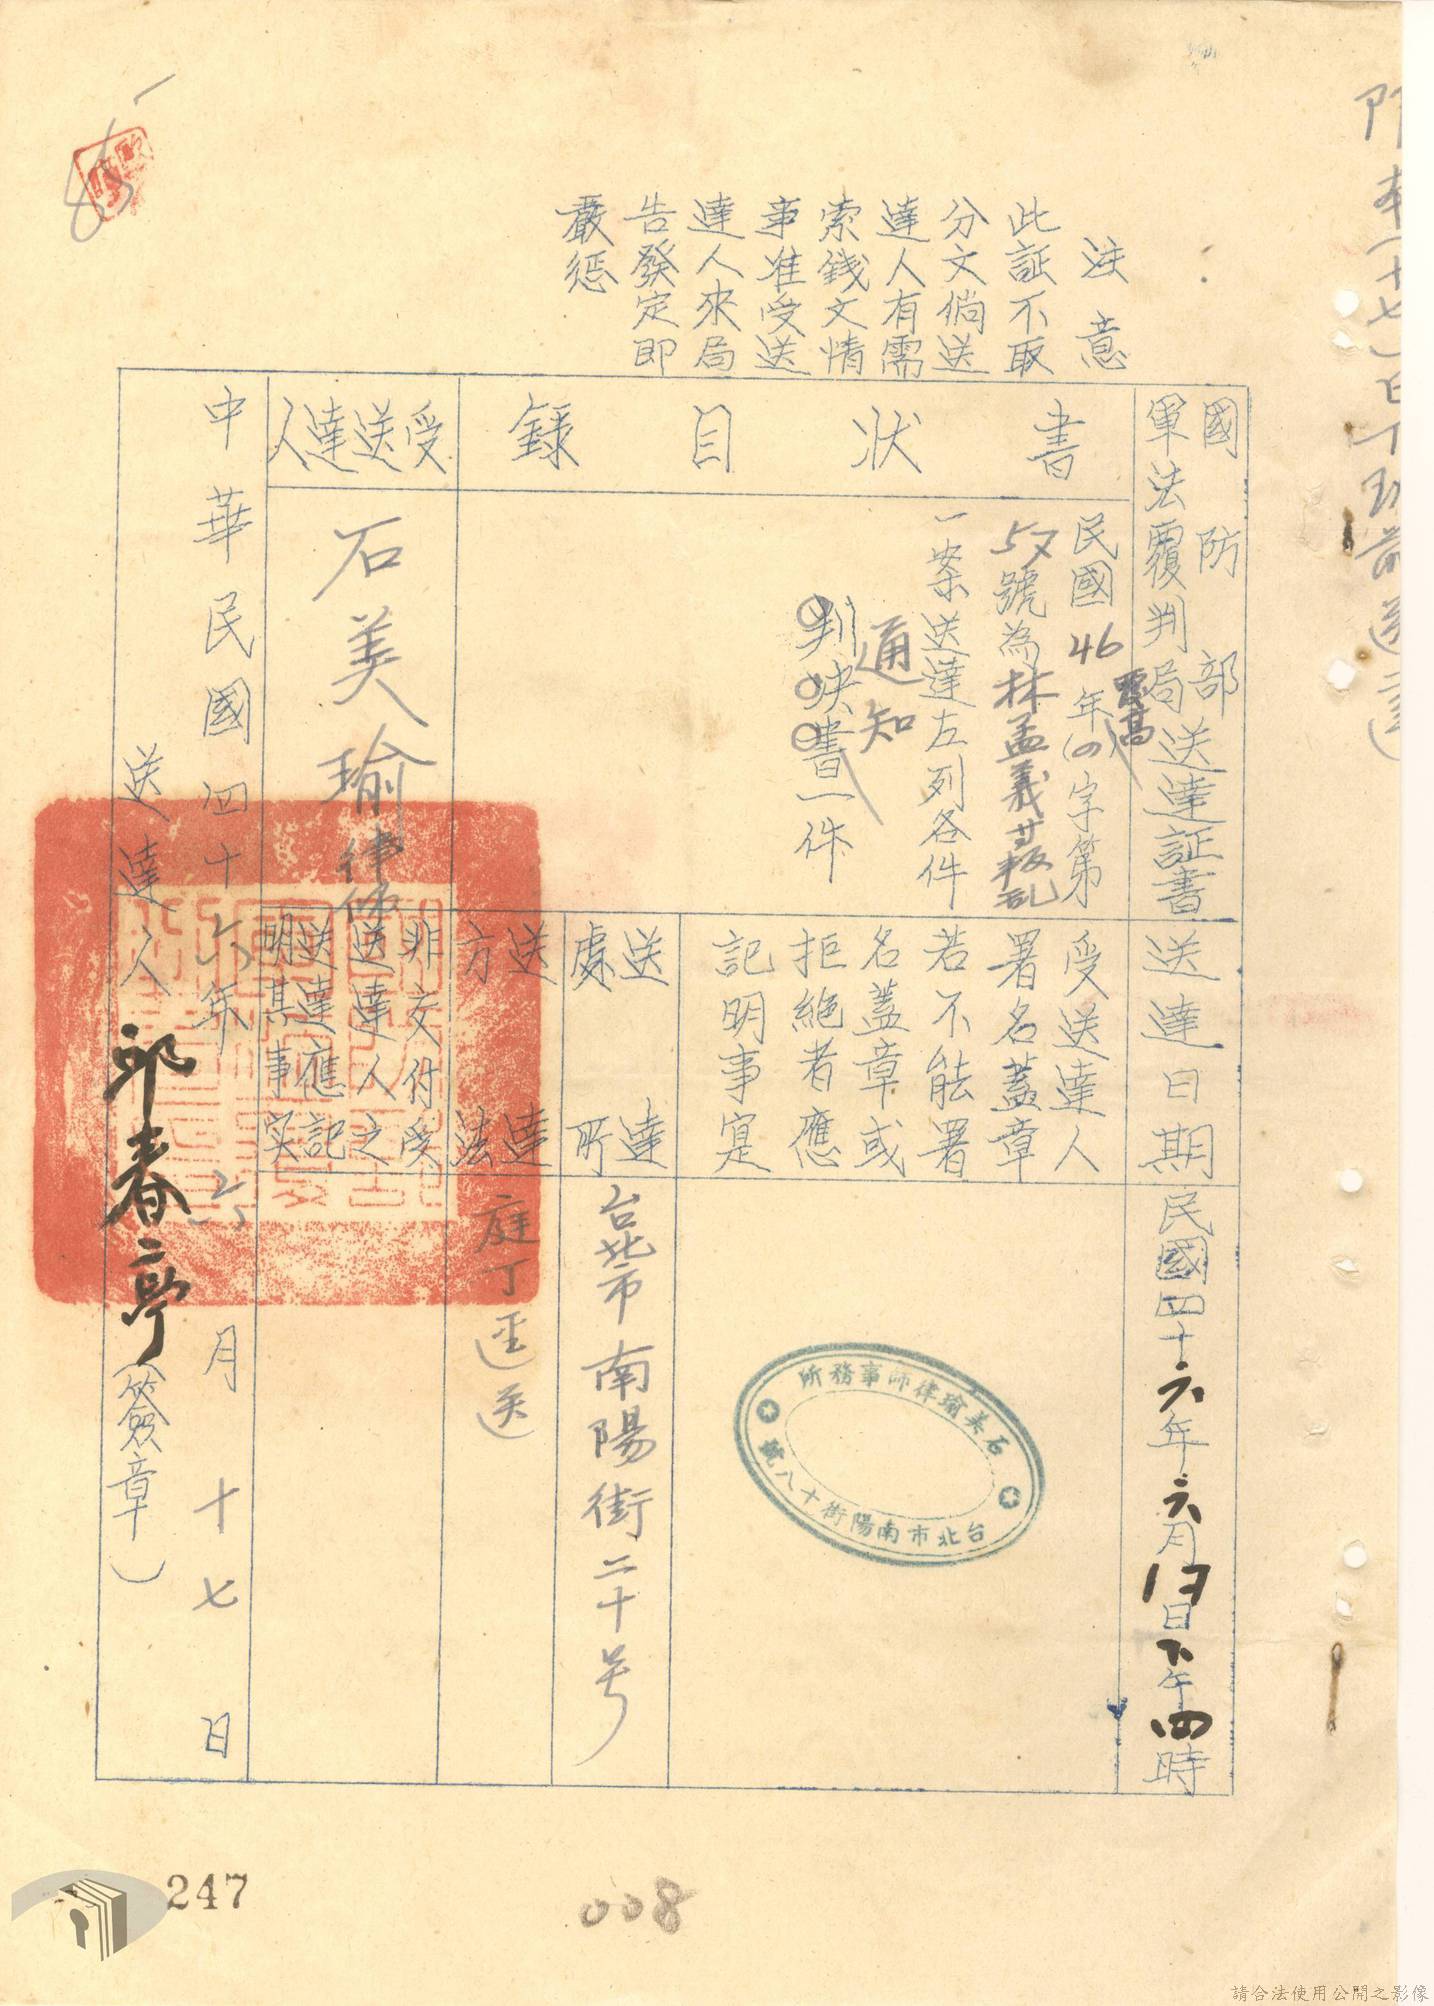 注意
此証不取
分文倘送
達人有需
索錢文情
事准受送
達人來局
告發定即
嚴惩
國防部
軍法覆判局送達証書
書狀目錄
民國46年(四)字第
覆高
號為林孟義廿叛乱
一案送達左列各件
通知
判決書一件
受送達人
石美瑜律師
送達日期
民國四十六年六月
日下午四時
受送達人
署名蓋章
若不能署
名蓋章或
拒絕者應
記明事寔
石美瑜律師事務所
台北市南陽街十八號
送達處所
台北市南陽街二十号
送達方法
庭丁逕送
非交付受
送達人之
送達應記
明其事实
中華民國四十六年六月十七日
送達人 邱春亭(簽章)
247
008
請合法使用公開之影像